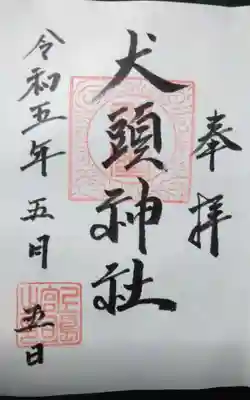 奉拝
犬頭神社
令和五年 五月
五日